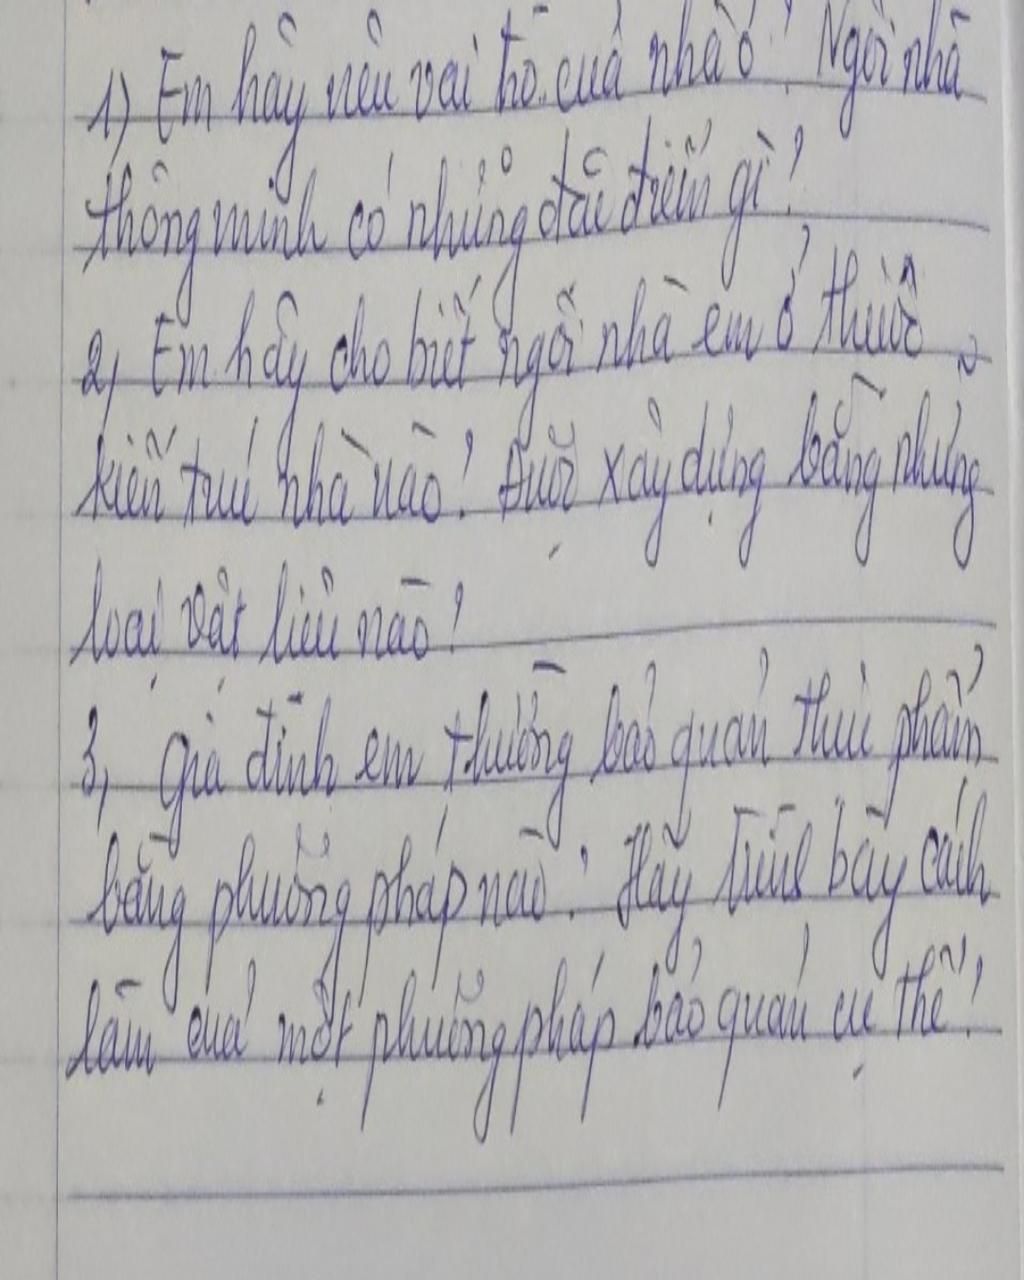 1) Em hãy nêu vai trò của nhà ở? Ngôi nhà
thông minh có những đặc điểm gì?
2, Em hãy cho biết ngôi nhà em ở thuộc
kiến trúc nhà nào? Được xây dựng bằng những
loại vật liệu nào?
3, Gia đình em thường bảo quản thực phẩm
bằng phương pháp nào? Hãy trình bày cách
làm của một phương pháp bảo quản cụ thể?